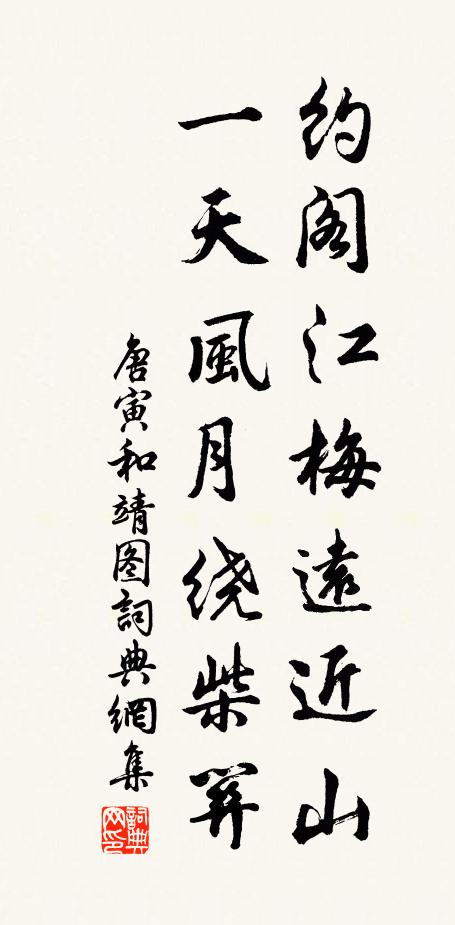 约阁江梅遠近山
一天風月绕柴关
唐寅和靖图詞典網集
詞典
网印